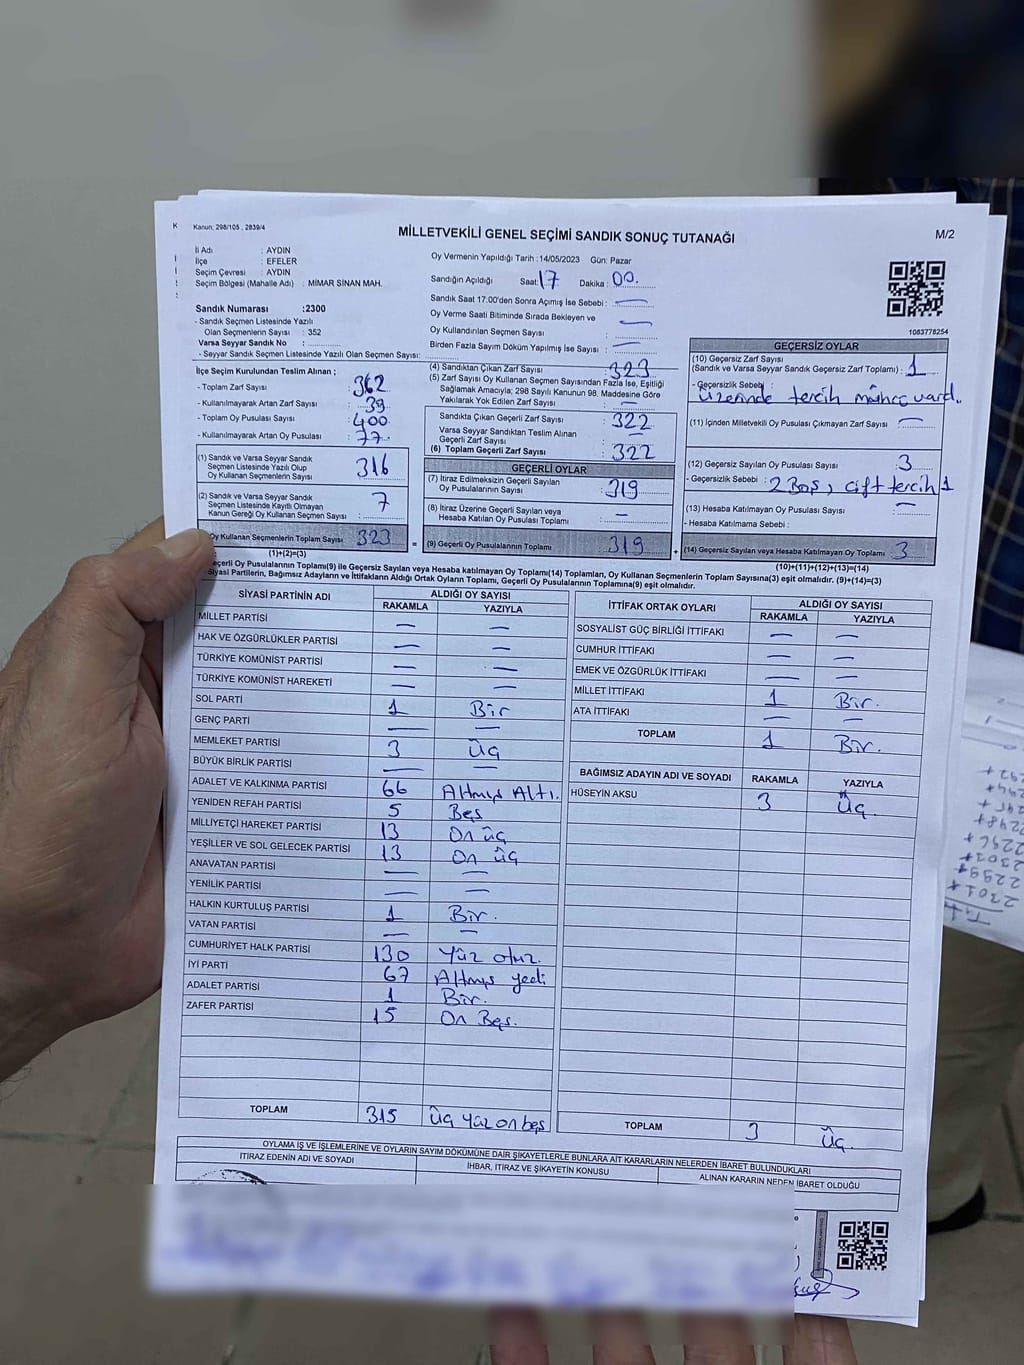 Kanun; 298/105 , 2839/4
MİLLETVEKİLİ GENEL SEÇİMİ SANDIK SONUÇ TUTANAĞI
M/2
İl Adı : AYDIN
İlçe : EFELER
Seçim Çevresi : AYDIN
Seçim Bölgesi (Mahalle Adı) : MİMAR SİNAN MAH.
Sandık Numarası :2300
- Sandık Seçmen Listesinde Yazılı
Olan Seçmenlerin Sayısı : 352
Varsa Seyyar Sandık No :
- Seyyar Sandık Seçmen Listesinde Yazılı Olan Seçmen Sayısı:
Oy Vermenin Yapıldığı Tarih :14/05/2023 Gün: Pazar
Sandığın Açıldığı Saat: 17 Dakika : 00.
Sandık Saat 17:00'den Sonra Açılmış İse Sebebi : —
Oy Verme Saati Bitiminde Sırada Bekleyen ve
Oy Kullandırılan Seçmen Sayısı : —
Birden Fazla Sayım Döküm Yapılmış İse Sayısı : —
1083778254
İlçe Seçim Kurulundan Teslim Alınan ;
- Toplam Zarf Sayısı : 362
- Kullanılmayarak Artan Zarf Sayısı : 39
- Toplam Oy Pusulası Sayısı : 400
- Kullanılmayarak Artan Oy Pusulası : 77
(1) Sandık ve Varsa Seyyar Sandık
Seçmen Listesinde Yazılı Olup
Oy Kullanan Seçmenlerin Sayısı : 316
(2) Sandık ve Varsa Seyyar Sandık
Seçmen Listesinde Kayıtlı Olmayan
Kanun Gereği Oy Kullanan Seçmen Sayısı : 7
Oy Kullanan Seçmenlerin Toplam Sayısı 323
(1)+(2)=(3)
(4) Sandıktan Çıkan Zarf Sayısı : 323
(5) Zarf Sayısı Oy Kullanan Seçmen Sayısından Fazla İse, Eşitliği
Sağlamak Amacıyla; 298 Sayılı Kanunun 98. Maddesine Göre
Yakılarak Yok Edilen Zarf Sayısı : —
Sandıkta Çıkan Geçerli Zarf Sayısı : 322
Varsa Seyyar Sandıktan Teslim Alınan
Geçerli Zarf Sayısı : —
(6) Toplam Geçerli Zarf Sayısı : 322
GEÇERLİ OYLAR
(7) İtiraz Edilmeksizin Geçerli Sayılan
Oy Pusulalarının Sayısı : 319
(8) İtiraz Üzerine Geçerli Sayılan veya
Hesaba Katılan Oy Pusulası Toplamı : —
= (9) Geçerli Oy Pusulalarının Toplamı 319
GEÇERSİZ OYLAR
(10) Geçersiz Zarf Sayısı
(Sandık ve Varsa Seyyar Sandık Geçersiz Zarf Toplamı) : 1
- Geçersizlik Sebebi :
üzerinde tercih mührü vard.
(11) İçinden Milletvekili Oy Pusulası Çıkmayan Zarf Sayısı : —
(12) Geçersiz Sayılan Oy Pusulası Sayısı : 3
- Geçersizlik Sebebi : 2 Boş, çift tercih 1
(13) Hesaba Katılmayan Oy Pusulası Sayısı : —
- Hesaba Katılmama Sebebi :
+ (14) Geçersiz Sayılan veya Hesaba Katılmayan Oy Toplamı : 3
(10)+(11)+(12)+(13)=(14)
Geçerli Oy Pusulalarının Toplamı(9) ile Geçersiz Sayılan veya Hesaba katılmayan Oy Toplamı(14) Toplamları, Oy Kullanan Seçmenlerin Toplam Sayısına(3) eşit olmalıdır. (9)+(14)=(3)
Siyasi Partilerin, Bağımsız Adayların ve İttifakların Aldığı Ortak Oyların Toplamı, Geçerli Oy Pusulalarının Toplamına(9) eşit olmalıdır.
SİYASİ PARTİNİN ADI ALDIĞI OY SAYISI
RAKAMLA YAZIYLA
MİLLET PARTİSİ — —
HAK VE ÖZGÜRLÜKLER PARTİSİ — —
TÜRKİYE KOMÜNİST PARTİSİ — —
TÜRKİYE KOMÜNİST HAREKETİ — —
SOL PARTİ 1 Bir
GENÇ PARTİ — —
MEMLEKET PARTİSİ 3 Üç
BÜYÜK BİRLİK PARTİSİ — —
ADALET VE KALKINMA PARTİSİ 66 Altmış Altı.
YENİDEN REFAH PARTİSİ 5 Beş
MİLLİYETÇİ HAREKET PARTİSİ 13 On üç
YEŞİLLER VE SOL GELECEK PARTİSİ 13 On üç
ANAVATAN PARTİSİ — —
YENİLİK PARTİSİ — —
HALKIN KURTULUŞ PARTİSİ 1 Bir.
VATAN PARTİSİ — —
CUMHURİYET HALK PARTİSİ 130 Yüz otuz.
İYİ PARTİ 67 Altmış yedi
ADALET PARTİSİ 1 Bir.
ZAFER PARTİSİ 15 On Beş.
TOPLAM 315 Üç yüz on beş
İTTİFAK ORTAK OYLARI ALDIĞI OY SAYISI
RAKAMLA YAZIYLA
SOSYALİST GÜÇ BİRLİĞİ İTTİFAKI — —
CUMHUR İTTİFAKI — —
EMEK VE ÖZGÜRLÜK İTTİFAKI — —
MİLLET İTTİFAKI 1 Bir.
ATA İTTİFAKI — —
TOPLAM 1 Bir.
BAĞIMSIZ ADAYIN ADI VE SOYADI RAKAMLA YAZIYLA
HÜSEYİN AKSU 3 Üç
TOPLAM 3 Üç.
OYLAMA İŞ VE İŞLEMLERİNE VE OYLARIN SAYIM DÖKÜMÜNE DAİR ŞİKAYETLERLE BUNLARA AİT KARARLARIN NELERDEN İBARET BULUNDUKLARI
İTİRAZ EDENİN ADI VE SOYADI İHBAR, İTİRAZ VE ŞİKAYETİN KONUSU ALINAN KARARIN NEDEN İBARET OLDUĞU